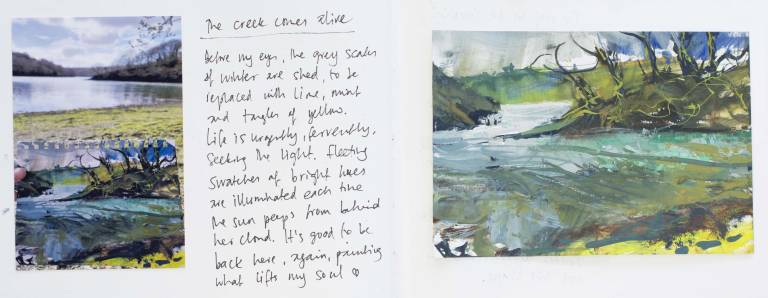 The creek comes alive
Before my eyes, the grey scales
of winter are shed, to be
replaced with lime, mint
and tangles of yellow.
Life is urgently, fervently,
seeking the light. Fleeting
swatches of bright hues
are illuminated each time
the sun peeps from behind
her cloud. It's good to be
back here, again, painting
what lifts my soul